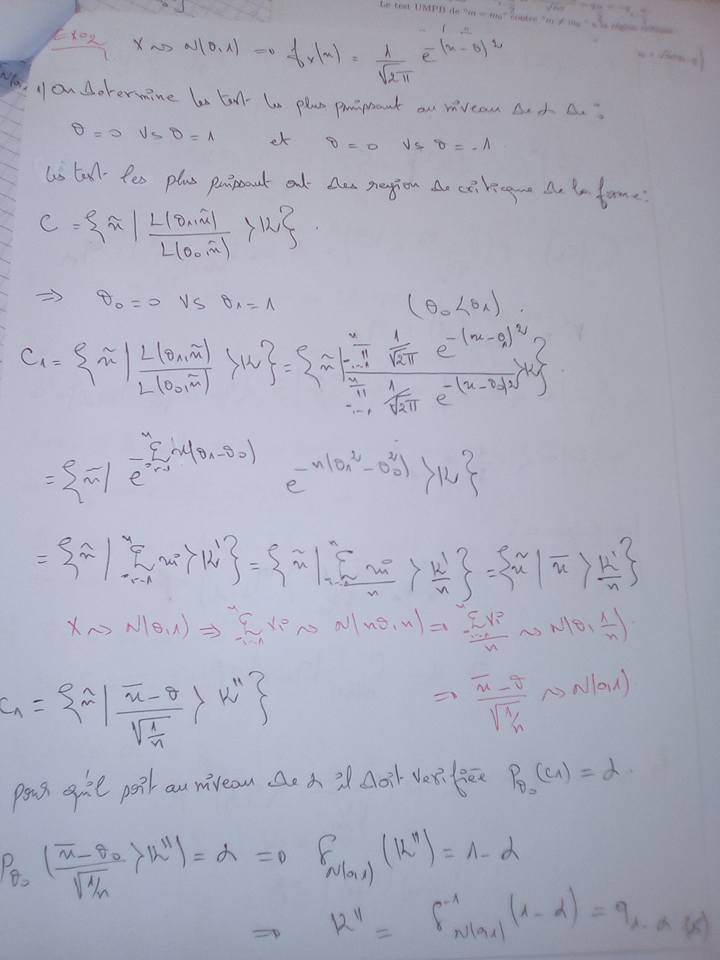 Le test UMPB de "m = m₀" contre "m ≠ m₀"
Exo2 X ~> N(θ,1) => f_X(x) = 1/√2π e^-(x-θ)²
1) On determine les test les plus puissant au niveau de α de :
θ=0 VS θ=1 et θ=0 VS θ=-1
Les test les plus puissant ont des region de critique de la forme:
C = {x̃ | L(θ₁,x̃)/L(θ₀,x̃) > K}.
=> θ₀=0 VS θ₁=1 (θ₀<θ₁).
C₁ = {x̃ | L(θ₁,x̃)/L(θ₀,x̃) > K} = {x̃ | ∏ⁿᵢ₌₁ 1/√2π e^-(x-θ₁)² / ∏ⁿᵢ₌₁ 1/√2π e^-(x-θ₀)² > K}.
= {x̃ | e^-Σⁿᵢ₌₁ x(θ₁-θ₀) e^-n(θ₁²-θ₀²) > K}
= {x̃ | Σⁿᵢ₌₁ xi > K'} = {x̃ | Σⁿᵢ₌₁ xi/n > K'/n} = {x̃ | x̄ > K'/n}
X ~> N(θ,1) => Σⁿᵢ₌₁ Xi ~> N(nθ,n) => Σⁿᵢ₌₁ Xi/n ~> N(θ,1/n)
C₁ = {x̃ | (x̄-θ)/√(1/n) > K''} => (x̄-θ)/√(1/n) ~> N(0,1)
pour qu'il soit au niveau de α il doit verifiée P_θ₀(C₁) = α.
P_θ₀((x̄-θ₀)/√(1/n) > K'') = α => F_N(0,1)(K'') = 1-α
=> K'' = F⁻¹_N(0,1)(1-α) = q₁₋α